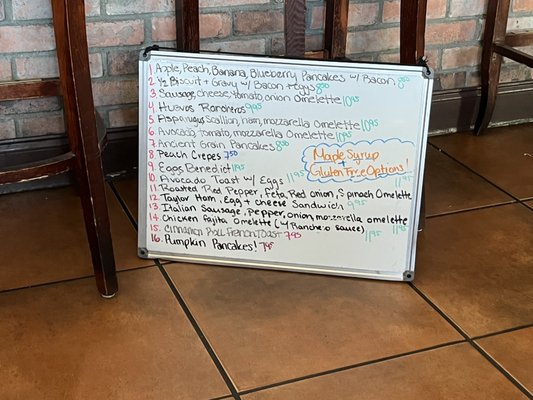 1 Apple, Peach, Banana, Blueberry Pancakes w/ Bacon 8.50
2 ½ Biscuit + Gravy w/ Bacon + Eggs 8.00
3 Sausage, cheese, tomato onion Omelette 10.95
4 Huevos Rancheros 9.95
5 Asparagus scallion, ham, mozzarella Omelette 10.95
6 Avocado, tomato, mozzarella Omelette 10.95
7 Ancient Grain Pancakes 8.00
8 Peach Crepes 7.50
Maple Syrup
+
Gluten Free Options!
9 Eggs Benedict 11.95
10. Avocado Toast w/ Eggs 11.95
11 Roasted Red Pepper, Feta, Red onion, Spinach Omelette
12. Taylor Ham, Egg + cheese Sandwich 11.95
13. Italian Sausage, Pepper, onion, mozzarella omelette
14. Chicken Fajita Omelette (w/ Ranchero sauce) 11.95
15. Cinnamon Roll French Toast 7.95 11.95
16. Pumpkin Pancakes! 7.95